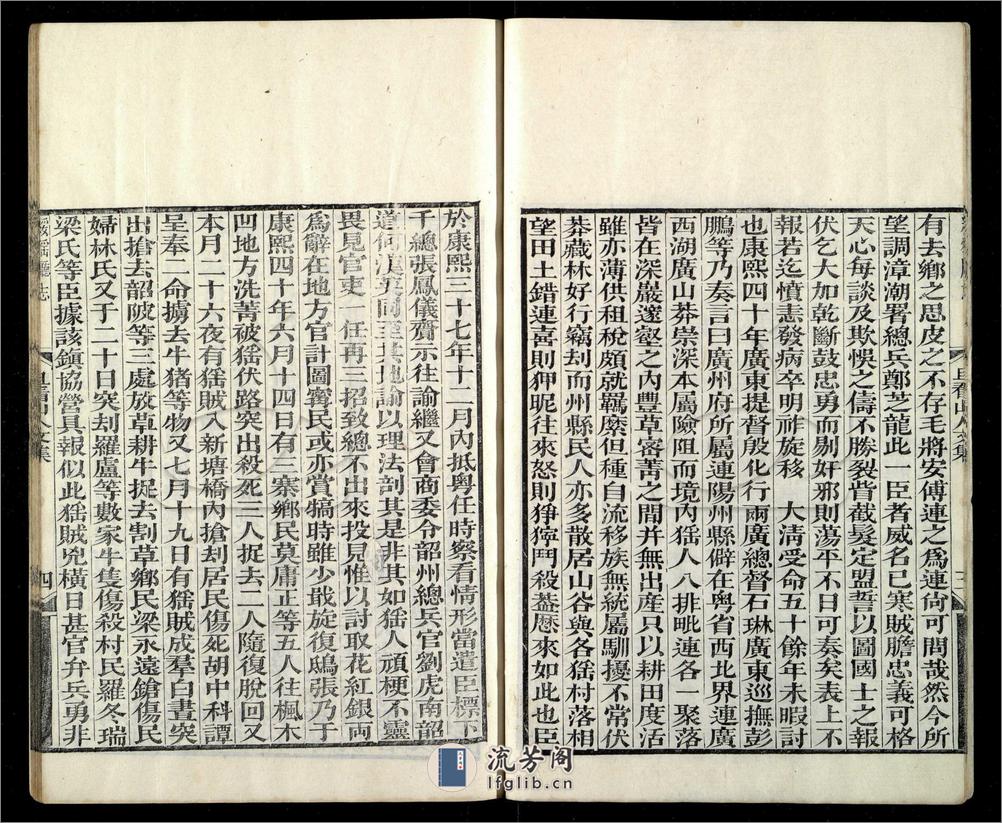 有去鄉之思皮之不存毛將安傅連之爲連尙可問哉然今所
望調漳潮署總兵鄭芝龍此一臣者威名已寒賊膽忠義可格
天心每談及欺悞之儔不勝裂眥截髮定盟誓以圖國士之報
伏乞大加乾斷鼓忠勇而剔奸邪則蕩平不日可奏矣表上不
報若迄憤恚發病卒明祚旋移 大清受命五十餘年未暇討
也康熙四十年廣東提督殷化行兩廣總督石琳廣東巡撫彭
鵬等乃奏言曰廣州府所屬連陽州縣僻在粵省西北界連廣
西湖廣山莽崇深本屬險阻而境內猺人八排毗連各一聚落
皆在深巖邃壑之內豐草密菁之間并無出産只以耕田度活
雖亦薄供租稅頗就羈縻但種自流移族無統屬馴擾不常伏
莽藏林好行竊刦而州縣民人亦多散居山谷與各猺村落相
望田土錯連喜則狎昵往來怒則猙獰鬥殺葢歷來如此也臣
於康熙三十七年十二月內抵粤任時察看情形當遣臣標下
千總張鳳儀齎示往諭繼又會商委令韶州總兵官劉虎南韶
道何漢英同至其地諭以理法剖其是非其如猺人頑梗不靈
畏見官吏一任再三招致總不出來投見惟以討取花紅銀両
爲辭在地方官計圖寗民或亦賞犒時雖少戢旋復鴟張乃于
康熙四十年六月十四日有三寨鄉民莫庸正等五人往楓木
凹地方洗菁被猺伏路突出殺死三人捉去二人隨復脫回又
本月二十六夜有猺賊入新塘橋內搶刦居民傷死胡中科譚
呈奉二命擄去牛猪等物又七月十九日有猺賊成羣白晝突
出搶去韶陂等三處放草耕牛捉去割草鄉民梁永遠鎗傷民
婦林氏又于二十日突刦羅盧等數家牛隻傷殺村民羅冬瑞
梁氏等臣據該鎮協營具報似此猺賊兇橫日甚官弁兵勇非
四
流芳阁
lfglib.cn